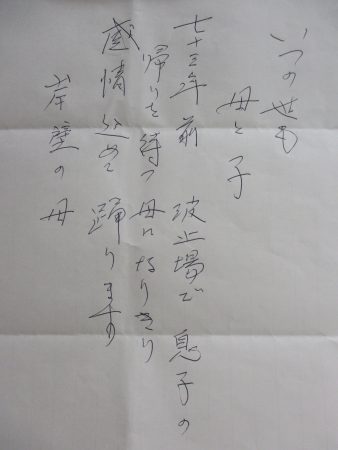 いつの世も
母と子
七十三年前 波止場で 息子の
帰りを待つ 母になりきり
感情込めて 踊ります
岸壁の 母